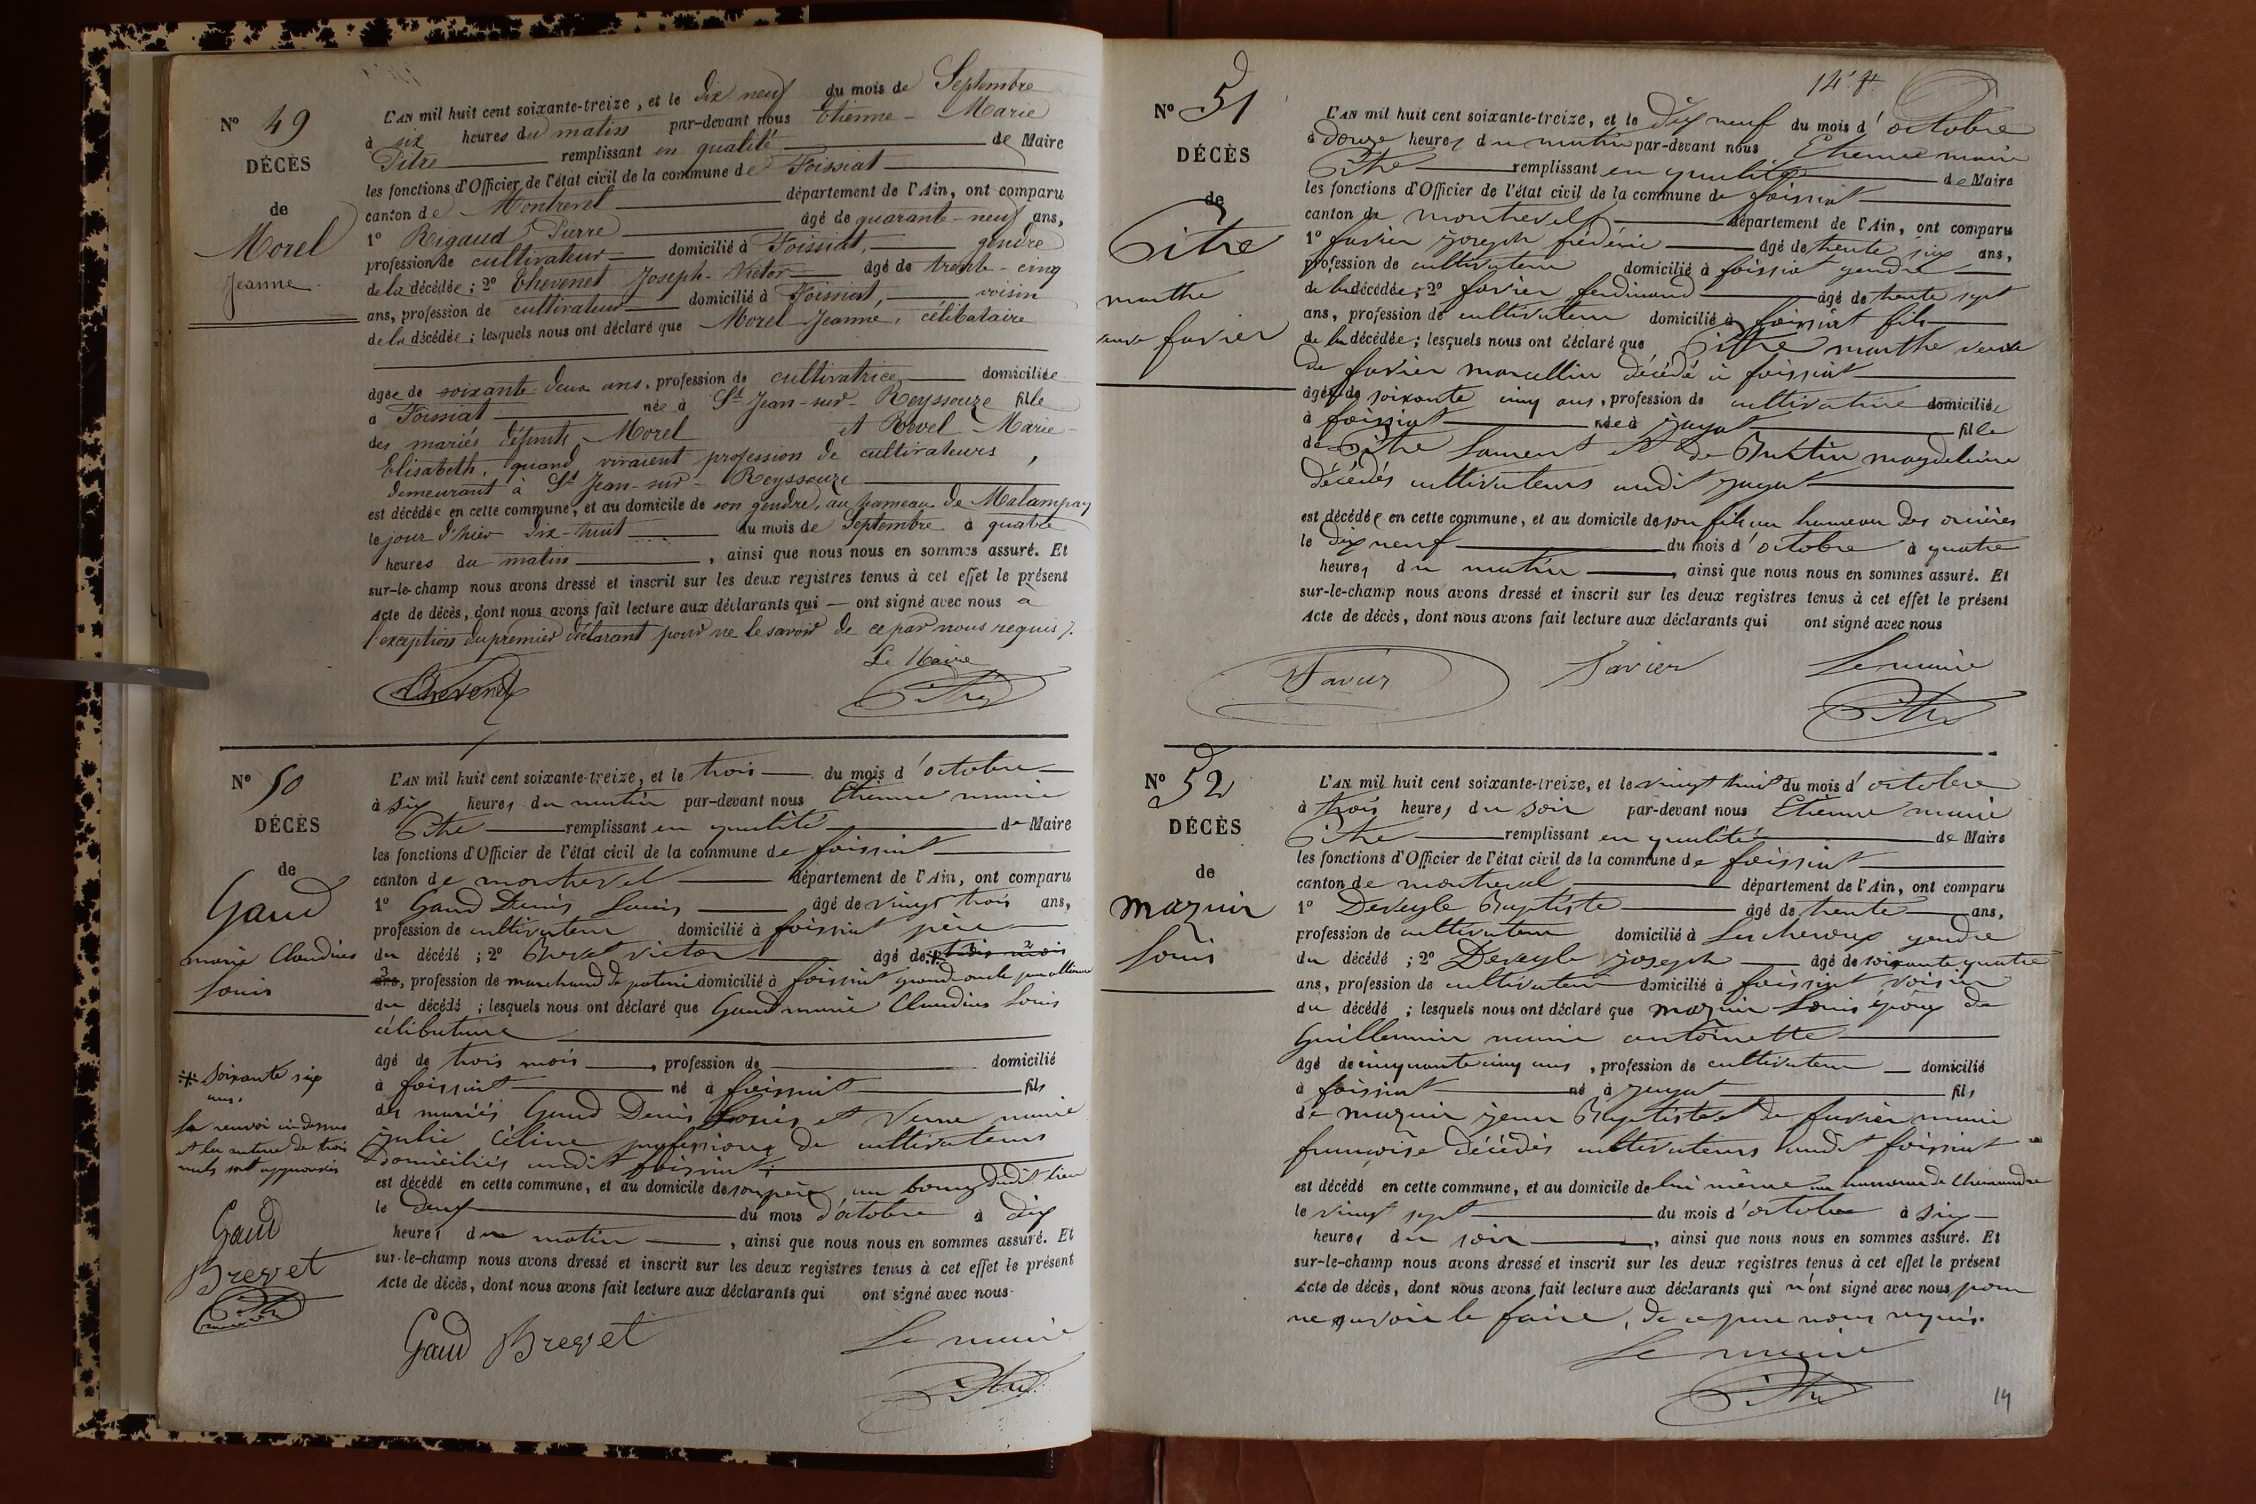 Nº 49
DÉCÈS
de
Morel
Jeanne
L'AN mil huit cent soixante-treize, et le dix neuf du mois de Septembre
à six heures du matin par-devant nous Etienne - Marie
Pitre remplissant en qualité de Maire
les fonctions d'Officier de l'état civil de la commune de Foissiat
canton de Montrevel département de l'Ain, ont comparu
1º Rigaud Pierre âgé de quarante-neuf ans,
profession de cultivateur domicilié à Foissiat, gendre
de la décédée ; 2º Thevenet Joseph-Victor âgé de trente-cinq
ans, profession de cultivateur domicilié à Foissiat, voisin
de la décédée ; lesquels nous ont déclaré que Morel Jeanne, célibataire
âgée de soixante-deux ans, profession de cultivatrice domiciliée
à Foissiat née à St Jean-sur-Reyssouze fille
des mariés défunts Morel et Revel Marie-
Elisabeth, quand vivaient profession de cultivateurs,
demeurant à St Jean-sur-Reyssouze
est décédée en cette commune, et au domicile de son gendre, au hameau de Malampay
le jour d'hier dix-huit du mois de Septembre à quatre
heures du matin, ainsi que nous nous en sommes assuré. Et
sur-le-champ nous avons dressé et inscrit sur les deux registres tenus à cet effet le présent
Acte de décès, dont nous avons fait lecture aux déclarants qui — ont signé avec nous à
l'exception du premier déclarant pour ne le savoir de ce par nous requis.
Le Maire
Thevenet Pitre
Nº 50
DÉCÈS
de
Gaud
marie Claudius
Louis
L'AN mil huit cent soixante-treize, et le trois du mois d'octobre
à six heures du matin par-devant nous Etienne marie
Pitre remplissant en qualité de Maire
les fonctions d'Officier de l'état civil de la commune de foissiat
canton de montrevel département de l'Ain, ont comparu
1º Gaud Denis Louis âgé de vingt trois ans,
profession de cultivateur domicilié à foissiat père
du décédé ; 2º Brevet victor âgé de
ans, profession de marchand de domicilié à foissiat grand oncle
du décédé ; lesquels nous ont déclaré que Gaud marie Claudius Louis
célibataire
âgé de trois mois, profession de domicilié
à foissiat né à foissiat fils
des mariés Gaud Denis Louis et Verne marie
julie Céline professions de cultivateurs
domiciliés audit foissiat
est décédé en cette commune, et au domicile de son père au bourg dudit lieu
le deux du mois d'octobre à dix
heures du matin, ainsi que nous nous en sommes assuré. Et
sur-le-champ nous avons dressé et inscrit sur les deux registres tenus à cet effet le présent
Acte de décès, dont nous avons fait lecture aux déclarants qui ont signé avec nous
Gaud Brevet Le maire
Pitre
* Soixante six
ans.
Le renvoi ci dessus
et la rature de trois
mots sont approuvés
Gaud
Brevet
Pitre
147
Nº 51
DÉCÈS
de
Pitre
marthe
veuve favier
L'AN mil huit cent soixante-treize, et le Dix neuf du mois d'octobre
à douze heures du matin par-devant nous Etienne marie
Pitre remplissant en qualité de Maire
les fonctions d'Officier de l'état civil de la commune de foissiat
canton de montrevel département de l'Ain, ont comparu
1º favier joseph frédéric âgé de trente six ans,
profession de cultivateur domicilié à foissiat gendre
de la décédée ; 2º favier ferdinand âgé de trente sept
ans, profession de cultivateur domicilié à foissiat fils
de la décédée ; lesquels nous ont déclaré que Pitre marthe veuve
de favier marcellin décédé à foissiat
âgée de soixante cinq ans, profession de cultivatrice domiciliée
à foissiat née à jayat fille
de Pitre Laurent et de Buttin magdeleine
décédés cultivateurs audit jayat
est décédée en cette commune, et au domicile de son fils au hameau des orcières
le dix neuf du mois d'octobre à quatre
heures du matin, ainsi que nous nous en sommes assuré. Et
sur-le-champ nous avons dressé et inscrit sur les deux registres tenus à cet effet le présent
Acte de décès, dont nous avons fait lecture aux déclarants qui ont signé avec nous
Favier Favier Le maire
Pitre
Nº 52
DÉCÈS
de
mazuir
Louis
L'AN mil huit cent soixante-treize, et le vingt huit du mois d'octobre
à trois heures du soir par-devant nous Etienne marie
Pitre remplissant en qualité de Maire
les fonctions d'Officier de l'état civil de la commune de foissiat
canton de montrevel département de l'Ain, ont comparu
1º Deveyle Baptiste âgé de trente ans,
profession de cultivateur domicilié à Lescheroux gendre
du décédé ; 2º Deveyle joseph âgé de soixante quatre
ans, profession de cultivateur domicilié à foissiat voisin
du décédé ; lesquels nous ont déclaré que mazuir Louis époux de
Guillermin marie antoinette
âgé de cinquante cinq ans, profession de cultivateur domicilié
à foissiat né à jayat fils
de mazuir jean Baptiste et de favier marie
françoise décédés cultivateurs audit foissiat
est décédé en cette commune, et au domicile de lui même au hameau de Chemandre
le vingt sept du mois d'octobre à six
heures du soir, ainsi que nous nous en sommes assuré. Et
sur-le-champ nous avons dressé et inscrit sur les deux registres tenus à cet effet le présent
Acte de décès, dont nous avons fait lecture aux déclarants qui n'ont signé avec nous pour
ne savoir le faire, de ce par nous requis.
Le maire
Pitre
19